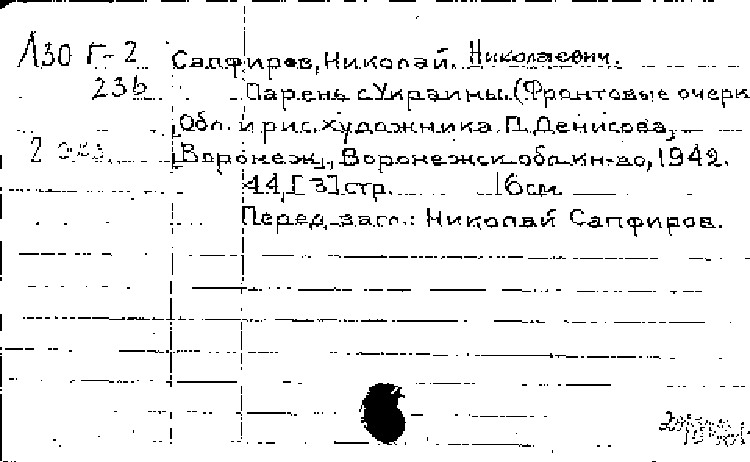 130 Г-2 Сапфиров, Николай Николаевич.
236 Парень с Украины. (Фронтовые очерк
Обл. и рис. художника П. Денисова,
2 экз. Воронеж, Воронежск. обл. кн-во, 1942.
44, [3] стр. 16 см.
Перед загл.: Николай Сапфиров.